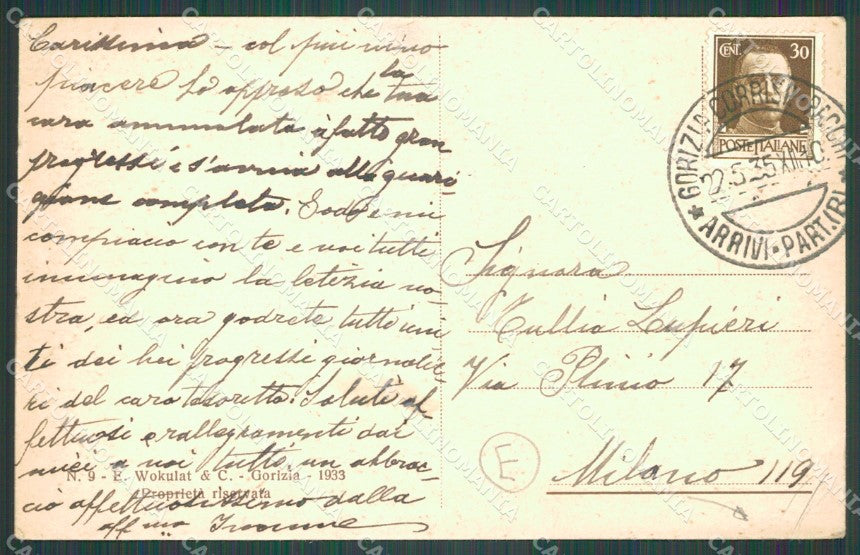 Carissima – col più vivo
piacere ho appreso che la tua
cara ammalata à fatto gran
progressi e s'avvia alla guari-
gione completa. Godo e mi
compiacio con te e voi tutti
immagino la letizia vo-
stra, ed ora godrete tutti uni
ti dei bei progressi giornalie-
ri del caro tesoretto. Saluti af
fettuosi e rallegramenti dai
miei a voi tutti, un abbrac-
cio affettuosissimo dalla
aff.ma
N. 9 - E. Wokulat & C. - Gorizia - 1933
Proprietà riservata
CENT. 30
POSTE ITALIANE
GORIZIA CORRISP. PACCHI
22.5.35 XIII
ARRIVI-PART.(B)
Signora
Tullia Lupieri
Via Plinio 17
Milano 119
E
CARTOLINOMANIA